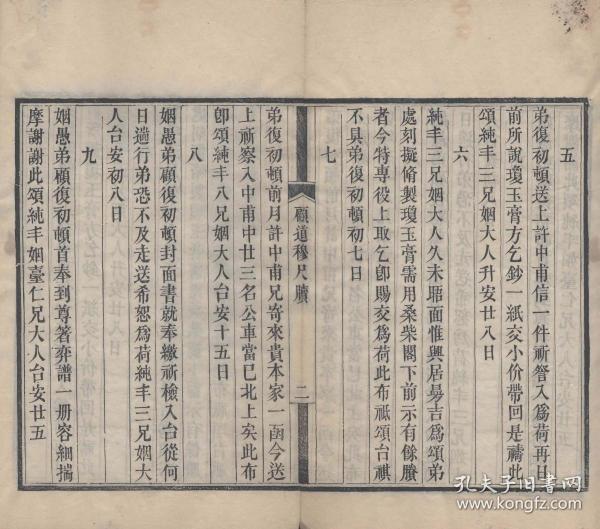 五
弟復初頓送上許中甫信一件祈詧入爲荷再日
前所說瓊玉膏方乞鈔一紙交小价帶回是禱此
頌純丰三兄姻大人升安廿八日
六
純丰三兄姻大人久未晤面惟興居曼吉爲頌弟
處刻擬脩製瓊玉膏需用桑柴閣下前示有餘賸
者今特專役上取乞卽賜交爲荷此布祗頌台祺
不具弟復初頓初七日
七
顧道穆尺牘
二
弟復初頓前月許中甫兄寄來貴本家一函今送
上祈察入中甫中廿三名公車當已北上矣此布
卽頌純丰八兄姻大人台安十五日
八
姻愚弟顧復初頓封面書就奉繳祈檢入台從何
日遄行弟恐不及走送希恕爲荷純丰三兄姻大
人台安初八日
九
姻愚弟顧復初頓首奉到尊著弈譜一册容細揣
摩謝謝此頌純丰姻臺仁兄大人台安廿五
孔夫子旧书网
www.kongfz.com